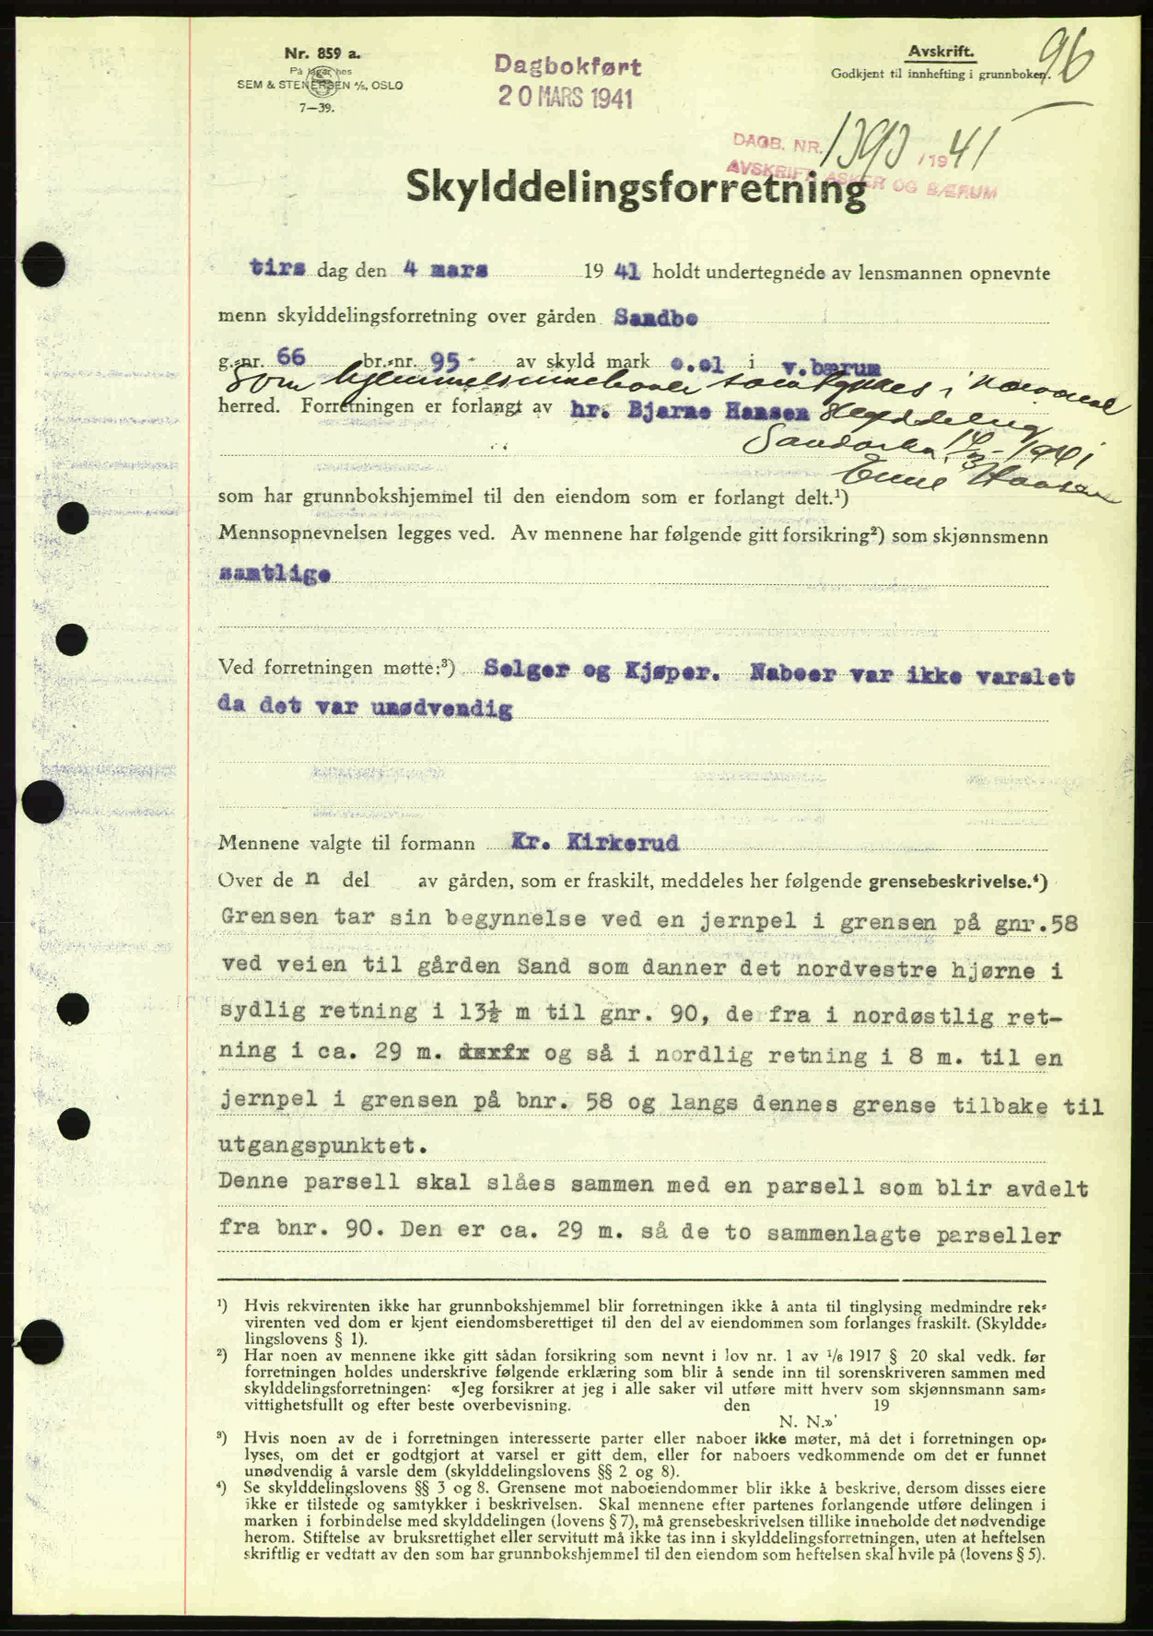 Nr. 859 a.
På lager hos
SEM & STENERSEN A/S, OSLO
7—39.
Dagbokført
20 MARS 1941
Avskrift.
Godkjent til innhefting i grunnboken.
96
DAGB. NR. 1393 /19 41
AVSKRIFT. ASKER OG BÆRUM
Skylddelingsforretning
tirs dag den 4 mars 19 41 holdt undertegnede av lensmannen opnevnte
menn skylddelingsforretning over gården Sandbo
g.-nr. 66 br.-nr. 95 - av skyld mark 0.01 i v.bærum
Som hjemmelsinnehaver samtykkes i
herred. Forretningen er forlangt av hr. Bjarne Hansen
Sandvika 14/3-1941
som har grunnbokshjemmel til den eiendom som er forlangt delt.¹)
Mennsopnevnelsen legges ved. Av mennene har følgende gitt forsikring²) som skjønnsmenn
samtlige
Ved forretningen møtte:³) Selger og Kjøper. Naboer var ikke varslet
da det var unødvendig
Mennene valgte til formann Kr. Kirkerud
Over de n del av gården, som er fraskilt, meddeles her følgende grensebeskrivelse.⁴)
Grensen tar sin begynnelse ved en jernpel i grensen på gnr.58
ved veien til gården Sand som danner det nordvestre hjørne i
sydlig retning i 13½ m til gnr. 90, de fra i nordøstlig ret-
ning i ca. 29 m. og så i nordlig retning i 8 m. til en
jernpel i grensen på bnr. 58 og langs dennes grense tilbake til
utgangspunktet.
Denne parsell skal slåes sammen med en parsell som blir avdelt
fra bnr. 90. Den er ca. 29 m. så de to sammenlagte parseller
¹) Hvis rekvirenten ikke har grunnbokshjemmel blir forretningen ikke å anta til tinglysing medmindre rek-
virenten ved dom er kjent eiendomsberettiget til den del av eiendommen som forlanges fraskilt. (Skyldde-
lingslovens § 1).
²) Har noen av mennene ikke gitt sådan forsikring som nevnt i lov nr. 1 av 1/6 1917 § 20 skal vedk. før
forretningen holdes underskrive følgende erklæring som blir å sende inn til sorenskriveren sammen med
skylddelingsforretningen: «Jeg forsikrer at jeg i alle saker vil utføre mitt hverv som skjønnsmann sam-
vittighetsfullt og efter beste overbevisning. den 19
N. N.»
³) Hvis noen av de i forretningen interesserte parter eller naboer ikke møter, må det i forretningen op-
lyses, om det er godtgjort at varsel er gitt dem, eller for naboers vedkommende om det er funnet
unødvendig å varsle dem (skylddelingslovens §§ 2 og 8).
⁴) Se skylddelingslovens §§ 3 og 8. Grensene mot naboeiendommer blir ikke å beskrive, dersom disses eiere
ikke er tilstede og samtykker i beskrivelsen. Skal mennene efter partenes forlangende utføre delingen i
marken i forbindelse med skylddelingen (lovens § 7), må grensebeskrivelsen tillike inneholde det nødvendige
herom. Stiftelse av bruksrettighet eller servitutt må ikke tas inn i skylddelingsforretningen, uten at heftelsen
skriftlig er vedtatt av den som har grunnbokshjemmel til den eiendom som heftelsen skal hvile på (lovens § 5).